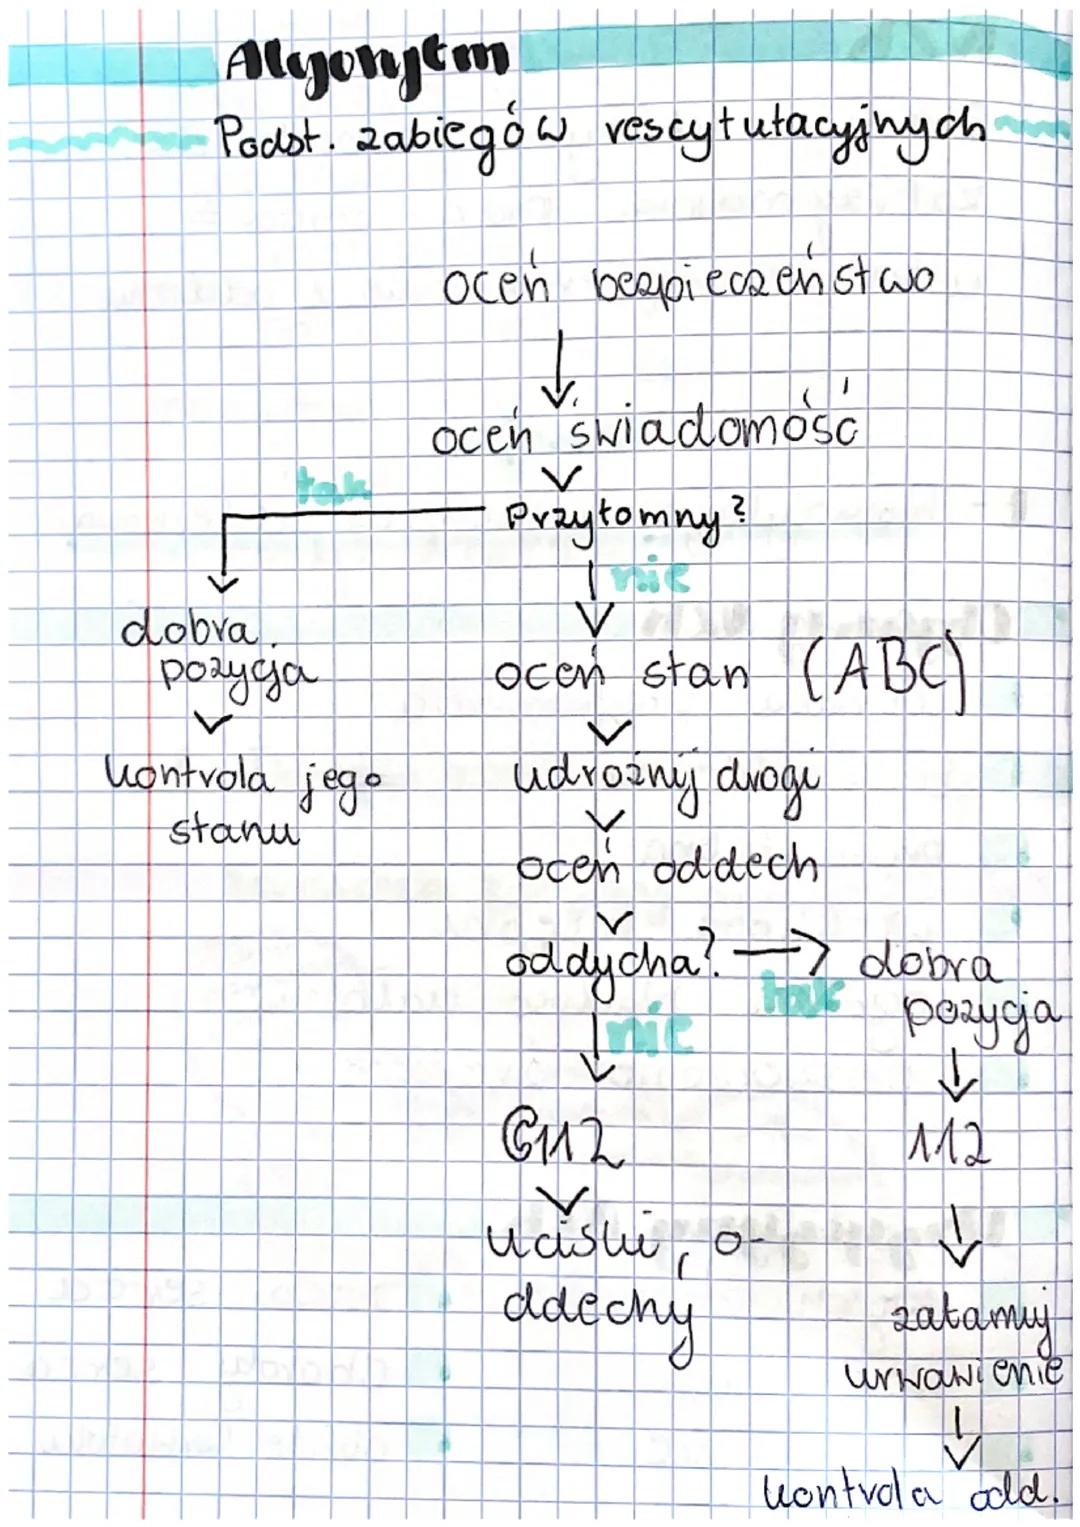 Algorytm
Podst. zabiegów rescytutacyjnych
oceń bezpieczeństwo
oceń świadomość
tak
Przytomny?
nie
dobra
pozycja
oceń stan (ABC)
kontrola jego
stanu
udrożnij drogi
oceń oddech
oddycha? → dobra
tak
pozycja
nie
112
112
uciski, o-
ddechy
zatamuj
krwawienie
kontrola odd.